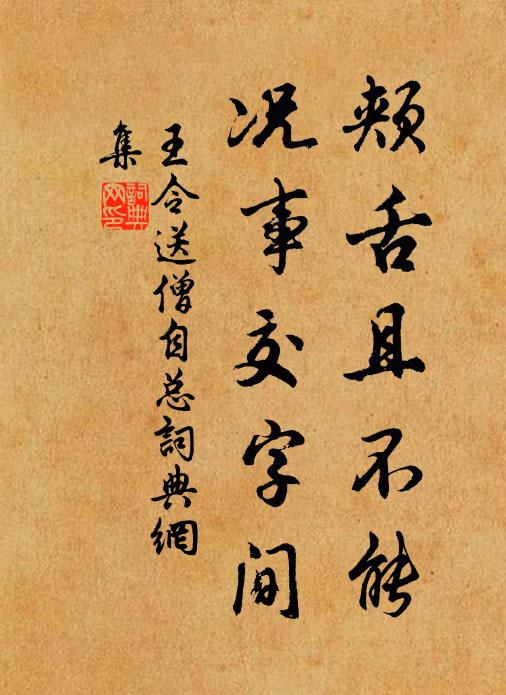 颊舌且不能
况事文字间
王令送僧自总词典網
集
詞典网印